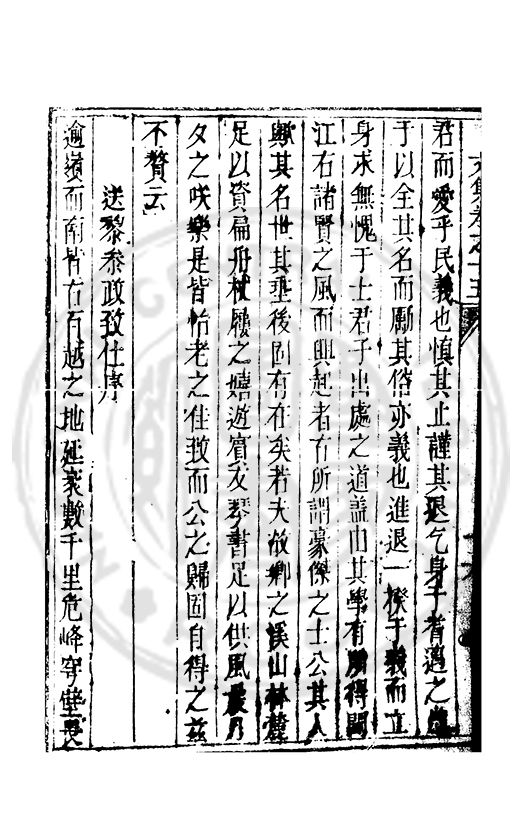 文集卷之十五
君而愛乎民義也慎其止謹其退乞身于耆邁之
于以全其名而勵其俗亦義也進退一揆于義而立
身求無愧于士君子出處之道蓋由其學有所得聞
江右諸賢之風而興起者有所謂豪傑之士公其人
歟其名世其垂後固有在矣若夫故鄉之溪山林麓
足以資扁舟杖履之嬉遊賓友琴書足以供風晨月
夕之咲樂是皆怡老之佳致而公之歸固自得之茲
不贅云
送黎參政致仕序
逾嶺而南皆古百越之地延袤數千里危峰穹壁